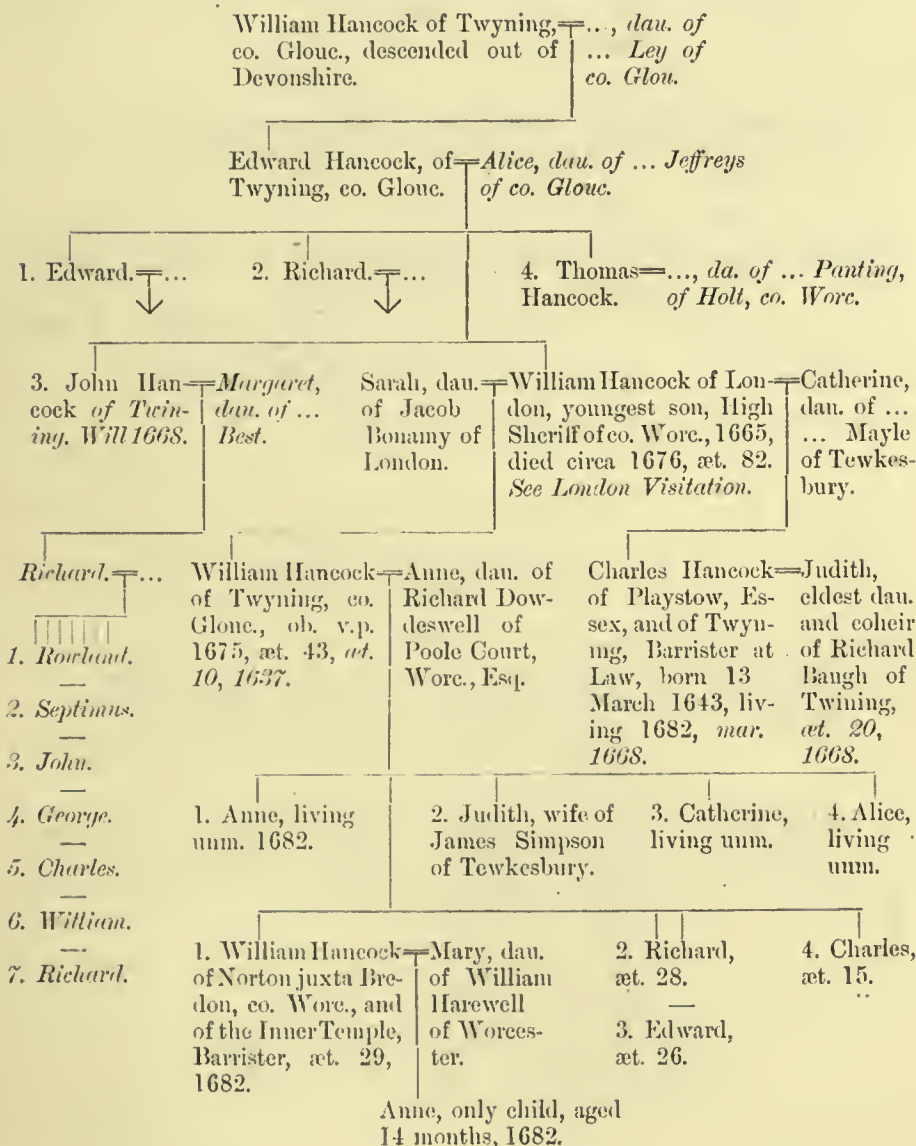 William Hancock of Twyning,
co. Glouc., descended out of
Devonshire.
..., dau. of
... Ley of
co. Glou.
Edward Hancock, of
Twyning, co. Glouc.
Alice, dau. of ... Jeffreys
of co. Glouc.
1. Edward.
...
2. Richard.
...
4. Thomas
Hancock.
..., da. of ... Panting,
of Holt, co. Worc.
3. John Han-
cock of Twin-
ing. Will 1668.
Margaret,
dau. of ...
Best.
Sarah, dau.
of Jacob
Bonamy of
London.
William Hancock of Lon-
don, youngest son, High
Sheriff of co. Worc., 1665,
died circa 1676, æt. 82.
See London Visitation.
Catherine,
dau. of ...
... Mayle
of Tewkes-
bury.
Richard.
...
1. Rowland.
—
2. Septimus.
—
3. John.
—
4. George.
—
5. Charles.
—
6. William.
—
7. Richard.
William Hancock
of Twyning, co.
Glouc., ob. v.p.
1675, æt. 43, æt.
10, 1637.
Anne, dau. of
Richard Dow-
deswell of
Poole Court,
Worc., Esq.
Charles Hancock
of Playstow, Es-
sex, and of Twyn-
ing, Barrister at
Law, born 13
March 1643, liv-
ing 1682, mar.
1668.
Judith,
eldest dau.
and coheir
of Richard
Baugh of
Twining,
æt. 20,
1668.
1. Anne, living
unm. 1682.
2. Judith, wife of
James Simpson
of Tewkesbury.
3. Catherine,
living unm.
4. Alice,
living
unm.
1. William Hancock
of Norton juxta Bre-
don, co. Worc., and
of the Inner Temple,
Barrister, æt. 29,
1682.
Mary, dau.
of William
Harewell
of Worces-
ter.
2. Richard,
æt. 28.
—
3. Edward,
æt. 26.
4. Charles,
æt. 15.
Anne, only child, aged
14 months, 1682.